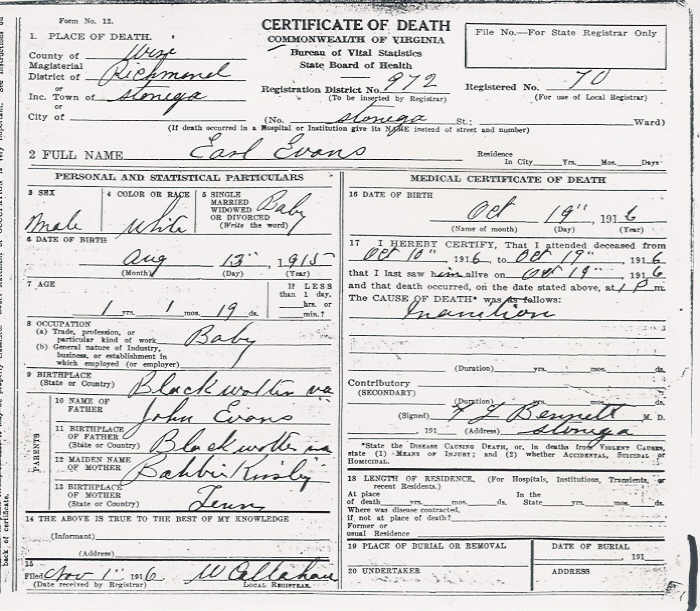 Form No. 12.
CERTIFICATE OF DEATH
COMMONWEALTH OF VIRGINIA
Bureau of Vital Statistics
State Board of Health
File No.—For State Registrar Only
1. PLACE OF DEATH.
County of Wise
Magisterial District of Richmond
or
Inc. Town of Stonega
or
City of
Registration District No. 972
(To be inserted by Registrar)
Registered No. 70
(For use of Local Registrar)
(No. Stonega St.; Ward)
(If death occurred in a Hospital or Institution give its NAME instead of street and number)
2 FULL NAME Earl Evans
Residence In City Yrs. Mos. Days
PERSONAL AND STATISTICAL PARTICULARS
3 SEX
Male
4 COLOR OR RACE
White
5 SINGLE MARRIED WIDOWED OR DIVORCED (Write the word)
Baby
6 DATE OF BIRTH
Aug 13" 1915
(Month) (Day) (Year)
7 AGE
1 yrs. 1 mos. 19 ds.
If LESS than 1 day, hrs. or min.
8 OCCUPATION
(a) Trade, profession, or particular kind of work
(b) General nature of Industry, business, or establishment in which employed (or employer)
Baby
9 BIRTHPLACE
(State or Country)
Black wotten va
PARENTS
10 NAME OF FATHER
John Evans
11 BIRTHPLACE OF FATHER
(State or Country)
Black wotten va
12 MAIDEN NAME OF MOTHER
13 BIRTHPLACE OF MOTHER
(State or Country)
Tenn
14 THE ABOVE IS TRUE TO THE BEST OF MY KNOWLEDGE
(Informant)
(Address)
15
Filed Nov 1" 1916
(Date received by Registrar)
W Callahan
LOCAL REGISTRAR.
MEDICAL CERTIFICATE OF DEATH
16 DATE OF BIRTH
Oct 19" 1916
(Name of month) (Day) (Year)
17 I HEREBY CERTIFY, That I attended deceased from
Oct 10" 1916 to Oct 19" 1916
that I last saw him alive on Oct 19" 1916
and that death occurred, on the date stated above, at 1 P m.
The CAUSE OF DEATH* was as follows:
Inanition
(Duration) yrs. mos. ds.
Contributory
(SECONDARY)
(Duration) yrs. mos. ds.
(Signed) F L Bennett M. D.
191 (Address) Stonega
*State the DISEASE CAUSING DEATH, or, in deaths from VIOLENT CAUSES,
state (1) MEANS OF INJURY; and (2) whether ACCIDENTAL, SUICIDAL or
HOMICIDAL.
18 LENGTH OF RESIDENCE, (For Hospitals, Institutions, Transients, or
recent Residents.)
At place of death yrs. mos. ds.
In the State yrs. mos. ds.
Where was disease contracted,
if not at place of death?
Former or
usual Residence
19 PLACE OF BURIAL OR REMOVAL
DATE OF BURIAL
191
20 UNDERTAKER
ADDRESS
back of certificate.